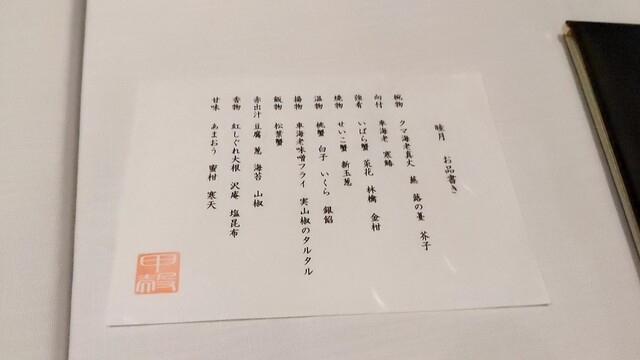 睦月　お品書き
椀物　クマ海老真丈　蕪　蕗の薹　芥子
向付　車海老　寒鰆
強肴　いばら蟹　菜花　林檎　金柑
焼物　せいこ蟹　新玉葱
温物　桃蟹　白子　いくら　銀餡
揚物　車海老味噌フライ　実山椒のタルタル
飯物　松葉蟹
赤出汁　豆腐　葱　海苔　山椒
香物　紅しぐれ大根　沢庵　塩昆布
甘味　あまおう　蜜柑　寒天
甲殻